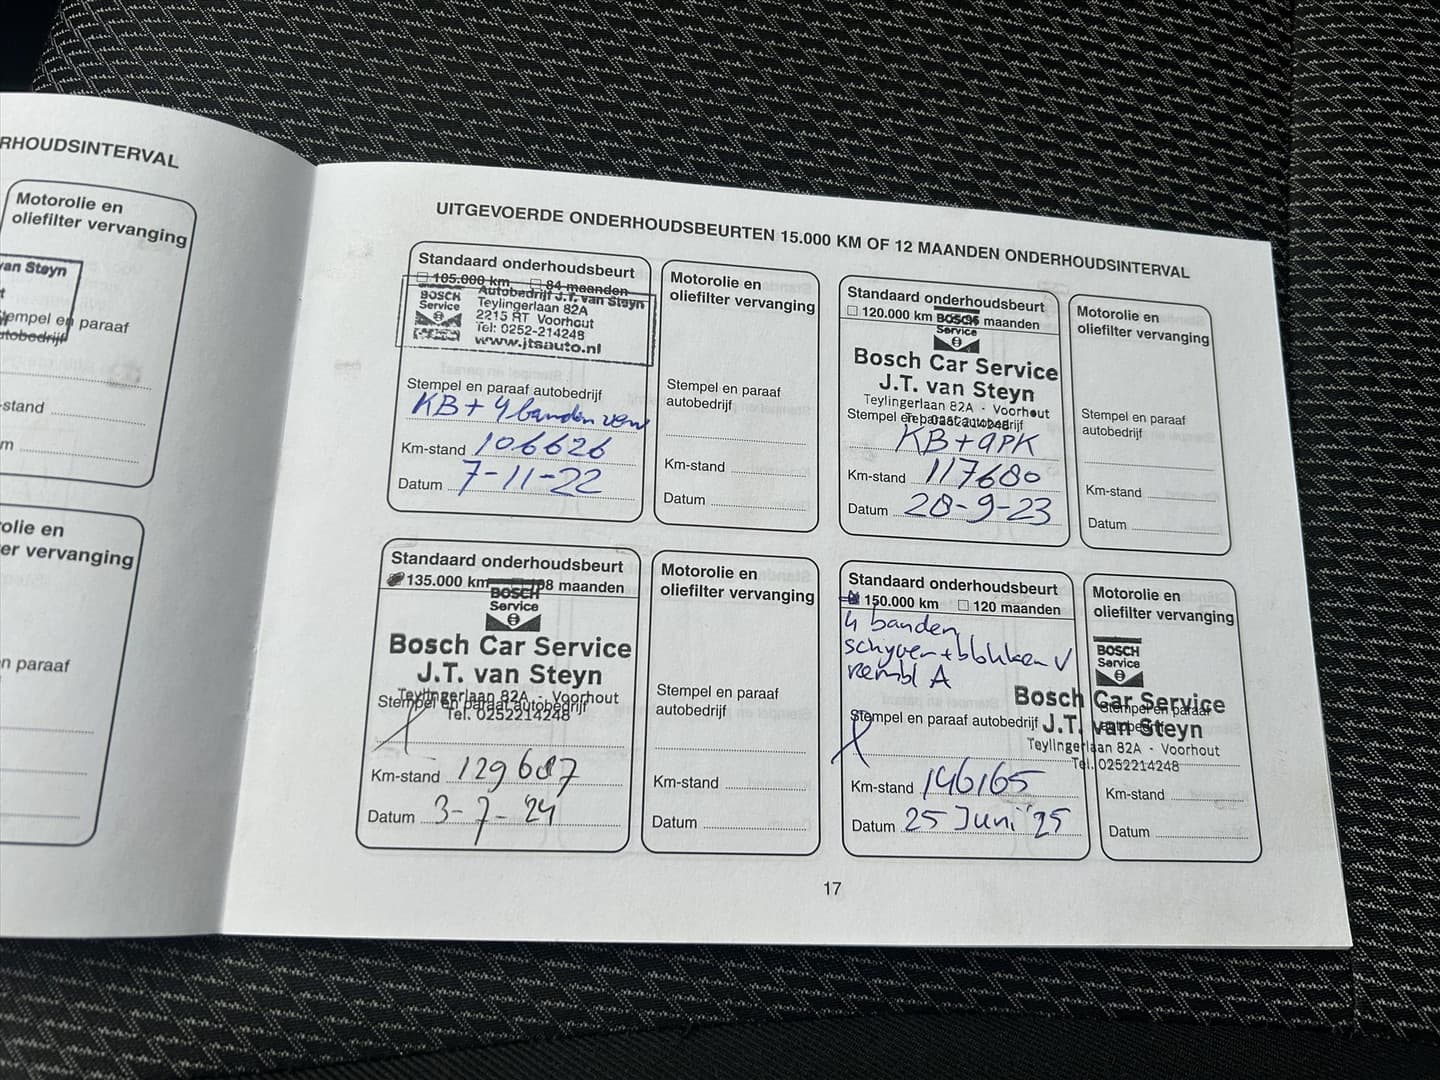 RHOUDSINTERVAL
Motorolie en
oliefilter vervanging
van Steyn
t
Stempel en paraaf
autobedrijf
-stand
m
olie en
er vervanging
n paraaf
UITGEVOERDE ONDERHOUDSBEURTEN 15.000 KM OF 12 MAANDEN ONDERHOUDSINTERVAL
Standaard onderhoudsbeurt
105.000 km 84 maanden
BOSCH
Service
Autobedrijf J.T. van Steyn
Teylingerlaan 82A
2215 RT Voorhout
Tel: 0252-214248
www.jtsauto.nl
Stempel en paraaf autobedrijf
KB + 4 banden verv
Km-stand 106626
Datum 7-11-22
Motorolie en
oliefilter vervanging
Stempel en paraaf
autobedrijf
Km-stand
Datum
Standaard onderhoudsbeurt
120.000 km 96 maanden
BOSCH
Service
Bosch Car Service
J.T. van Steyn
Teylingerlaan 82A - Voorhout
Tel. 0252214248
Stempel en paraaf autobedrijf
KB + APK
Km-stand 117680
Datum 28-9-23
Motorolie en
oliefilter vervanging
Stempel en paraaf
autobedrijf
Km-stand
Datum
Standaard onderhoudsbeurt
135.000 km 108 maanden
BOSCH
Service
Bosch Car Service
J.T. van Steyn
Teylingerlaan 82A - Voorhout
Stempel en paraaf autobedrijf
Tel. 0252214248
Km-stand 129687
Datum 3-7-24
Motorolie en
oliefilter vervanging
Stempel en paraaf
autobedrijf
Km-stand
Datum
Standaard onderhoudsbeurt
150.000 km 120 maanden
4 banden
schyven + blokken V
rembl A
Stempel en paraaf autobedrijf
Km-stand 146165
Datum 25 Juni '25
Motorolie en
oliefilter vervanging
BOSCH
Service
Bosch Car Service
Stempel en paraaf
J.T. van Steyn
autobedrijf
Teylingerlaan 82A - Voorhout
Tel. 0252214248
Km-stand
Datum
17